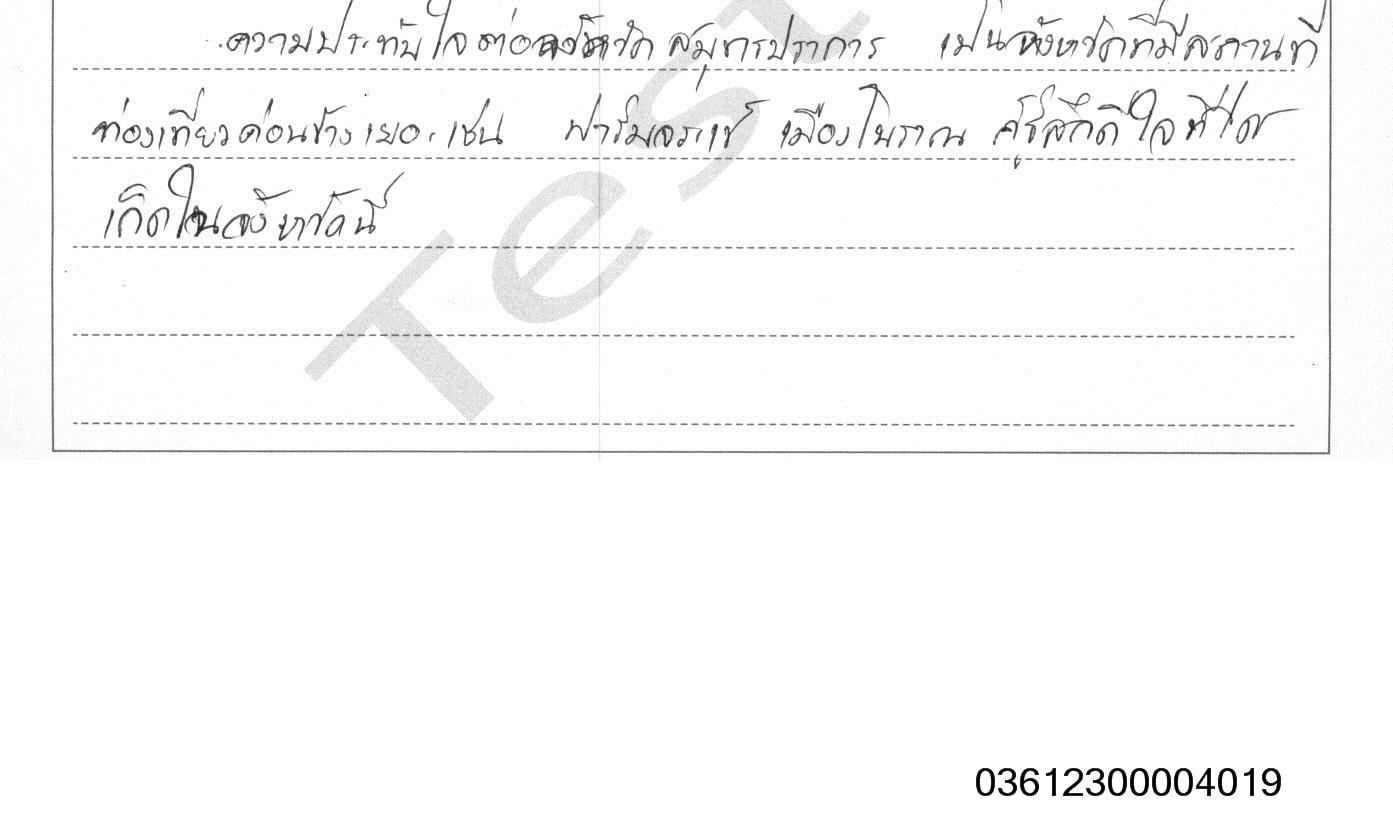 ความประทับใจต่อจังหวัด สมุทรปราการ เป็นจังหวัดที่มีสถานที่
ท่องเที่ยวค่อนข้างเยอะ เช่น ฟาร์มจระเข้ เมืองโบราณ รู้สึกดีใจที่ได้
เกิดในจังหวัดนี้
Test
03612300004019